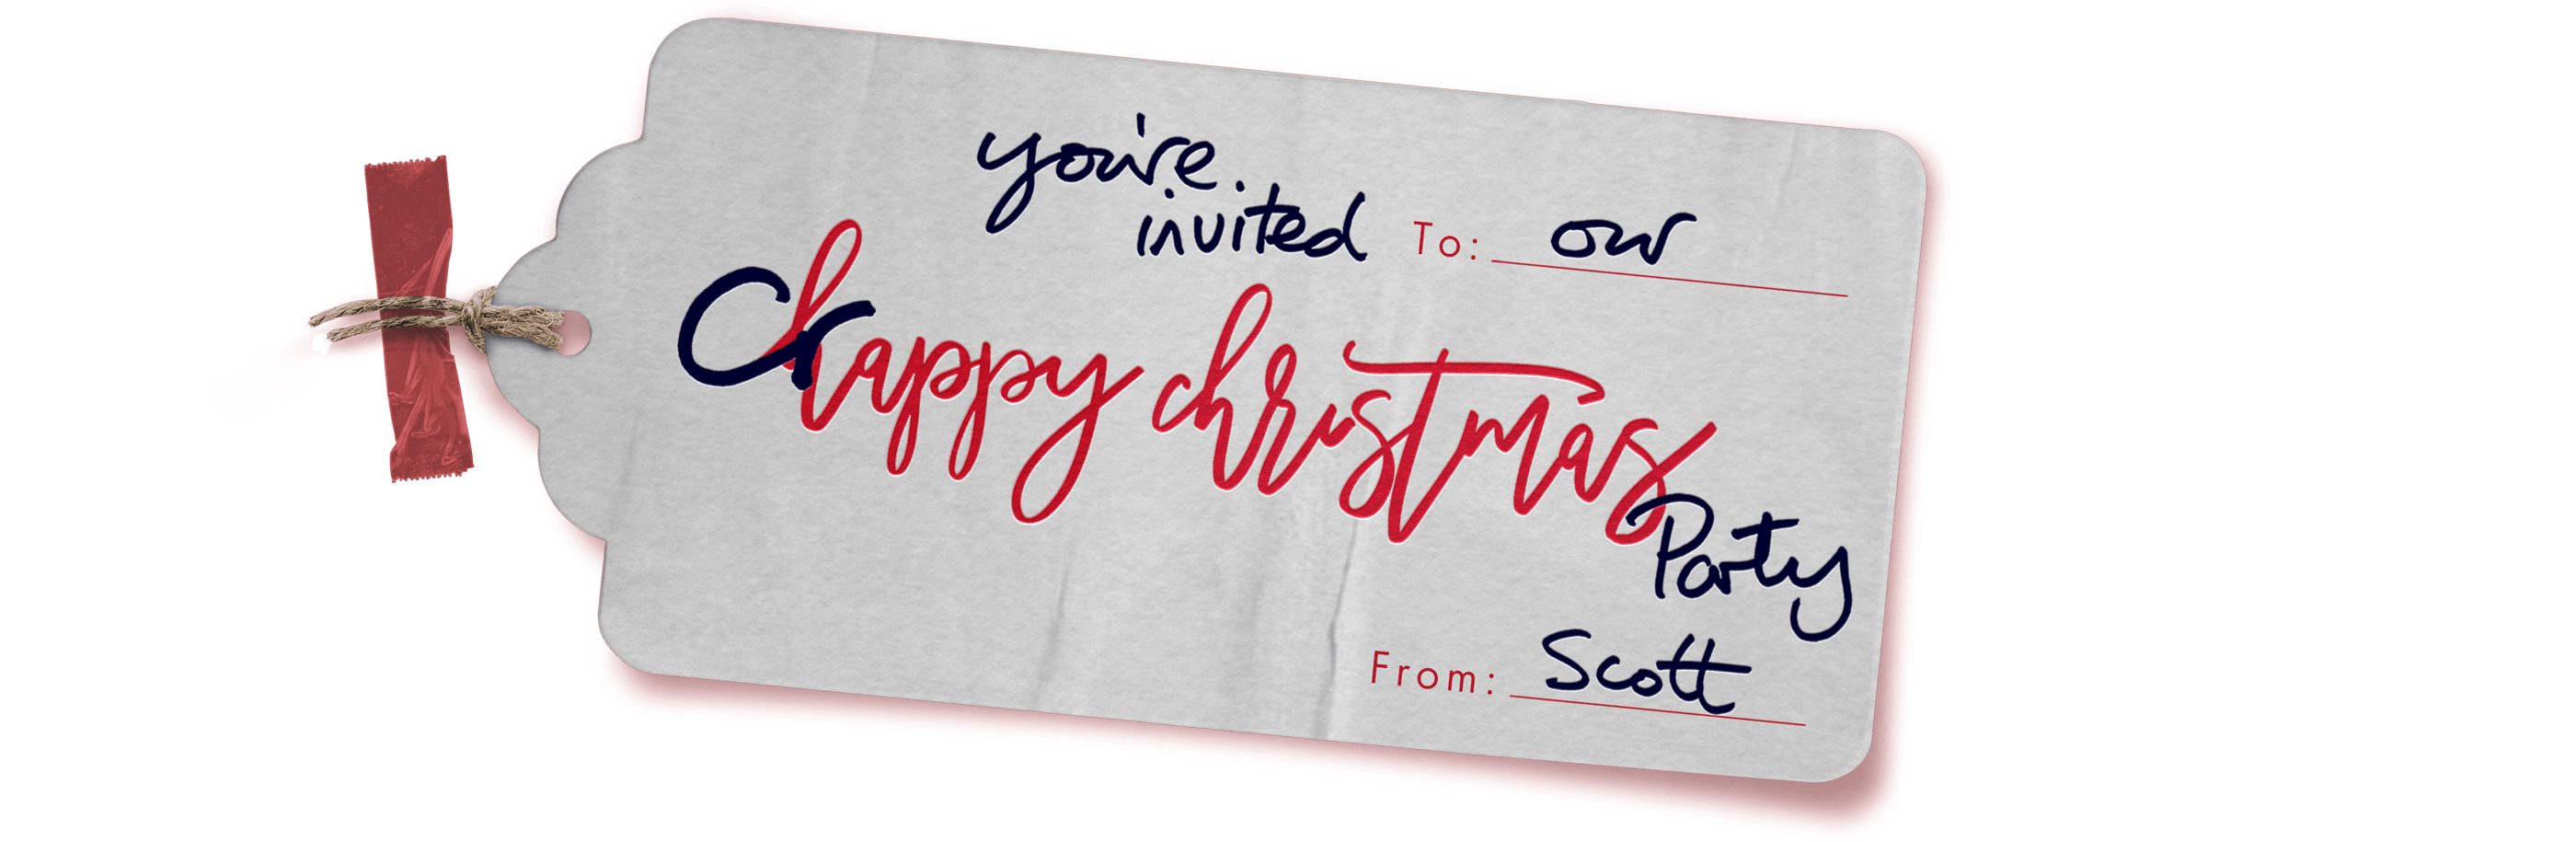 you're
invited To: our
Crappy christmas
Party
From: Scott